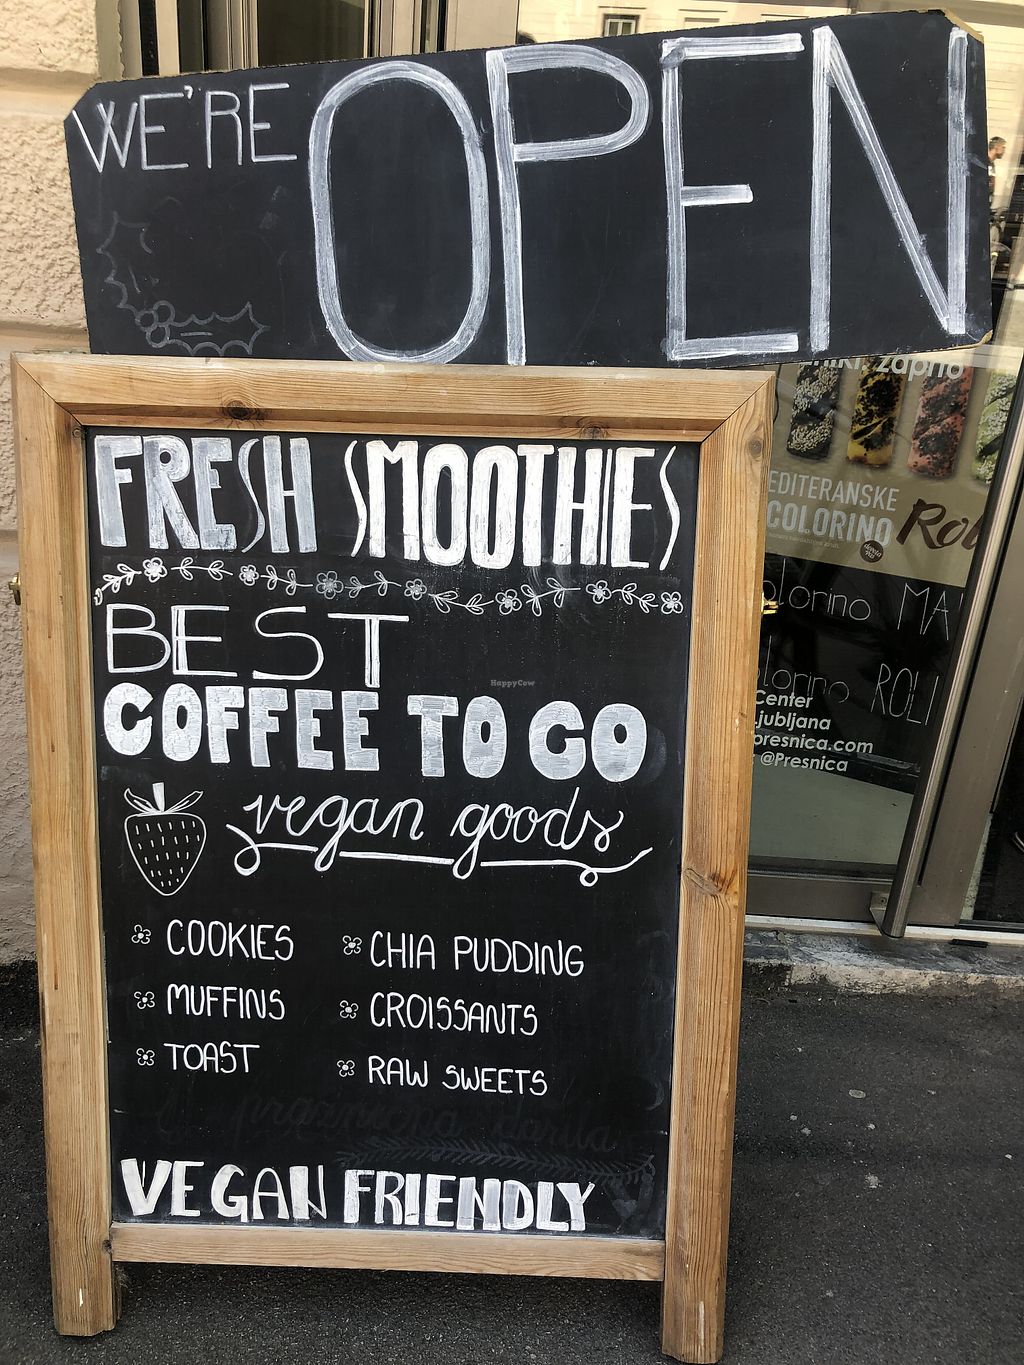 WE'RE OPEN
FRESH SMOOTHIES
BEST
COFFEE TO GO
vegan goods
COOKIES
MUFFINS
TOAST
CHIA PUDDING
CROISSANTS
RAW SWEETS
praznicna darila
VEGAN FRIENDLY
HappyCow
zaprto
EDITERANSKE
COLORINO
Rol
olorino MA
lorino ROLI
Center
jubljana
presnica.com
@Presnica